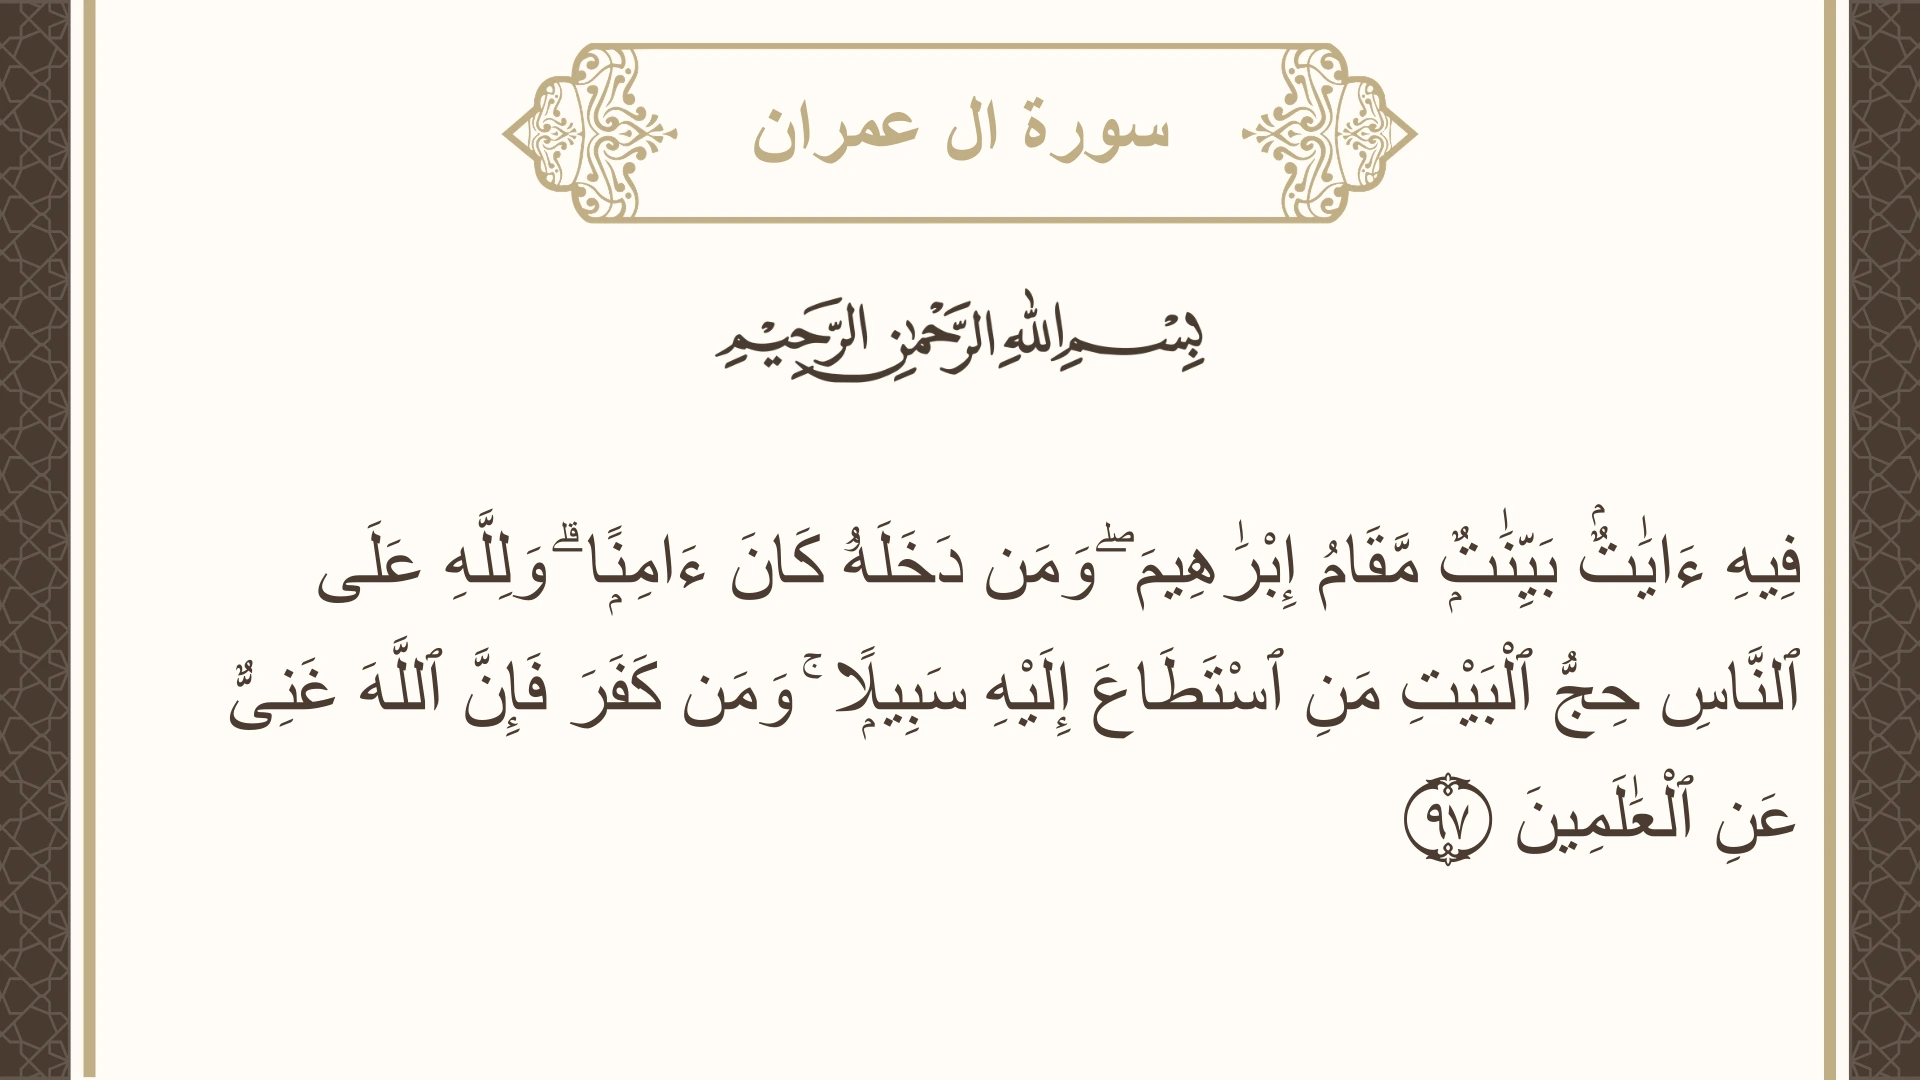 سورة ال عمران
بِسْمِ اللهِ الرَّحْمٰنِ الرَّحِيْمِ
فِيهِ ءَايَٰتٌۢ بَيِّنَٰتٌۭ مَّقَامُ إِبْرَٰهِيمَ ۖ وَمَن دَخَلَهُۥ كَانَ ءَامِنًۭا ۗ وَلِلَّهِ عَلَى
ٱلنَّاسِ حِجُّ ٱلْبَيْتِ مَنِ ٱسْتَطَاعَ إِلَيْهِ سَبِيلًۭا ۚ وَمَن كَفَرَ فَإِنَّ ٱللَّهَ غَنِىٌّ
عَنِ ٱلْعَٰلَمِينَ ٩٧